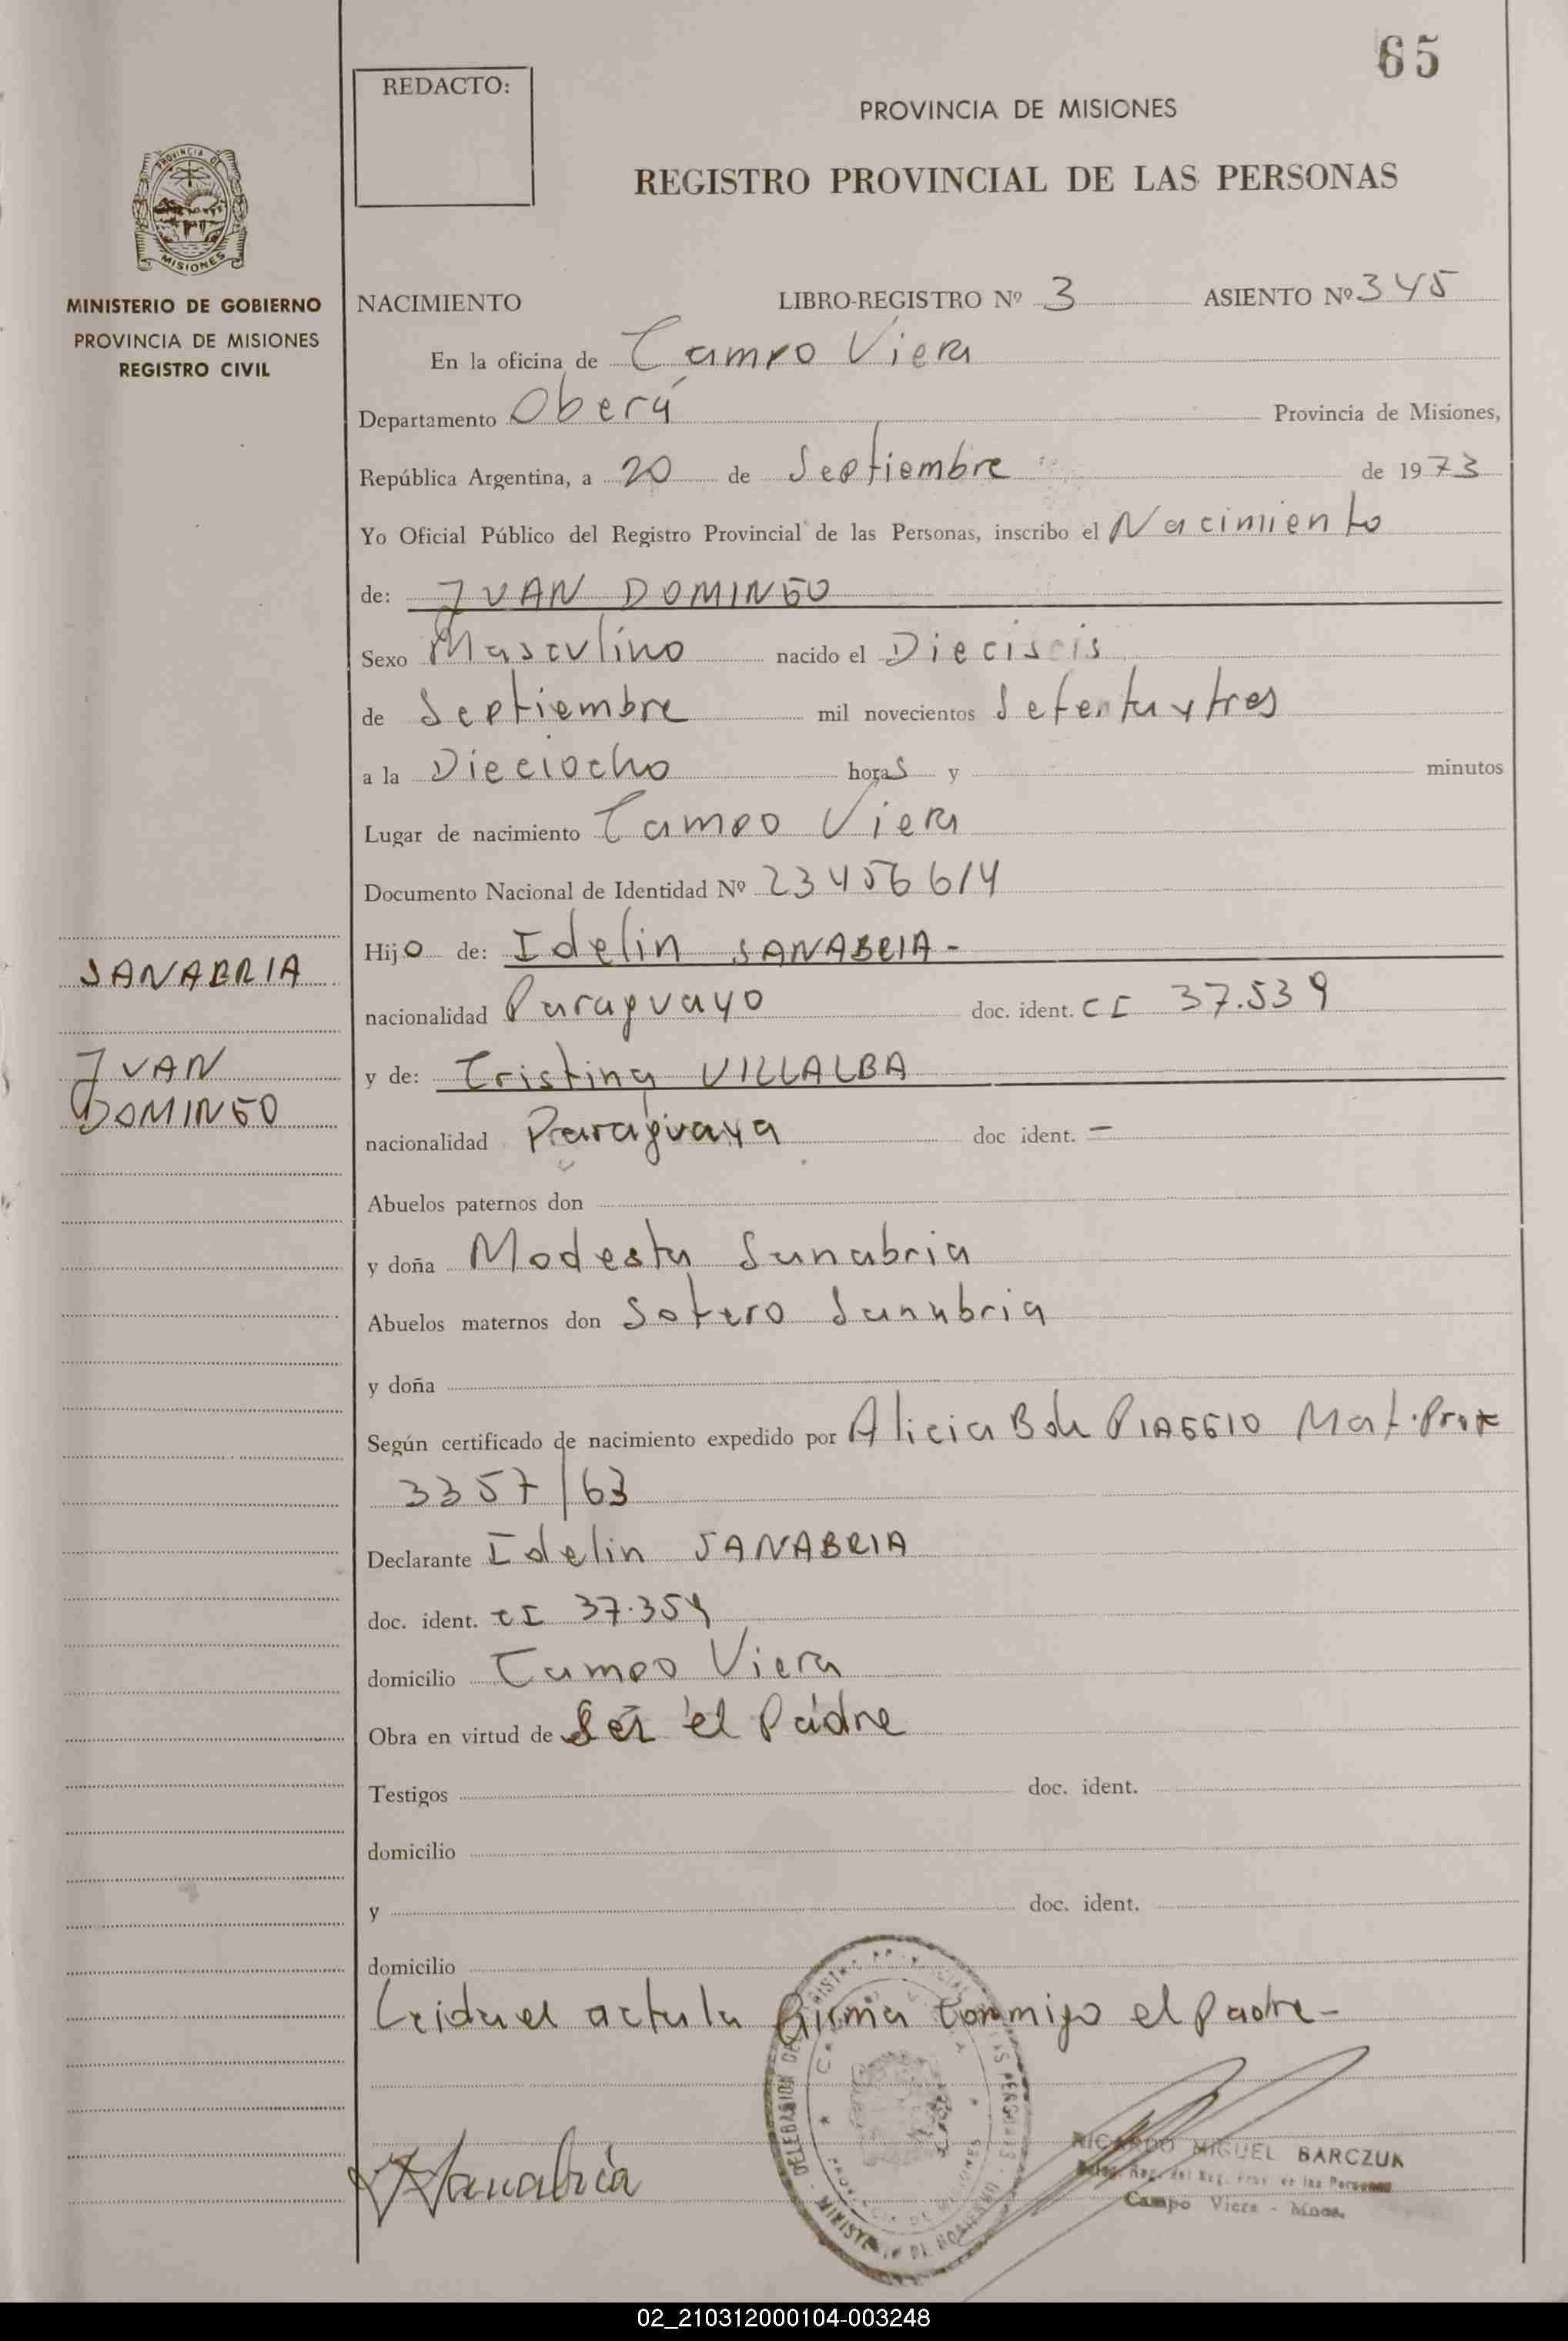 65
REDACTO:
PROVINCIA DE MISIONES
REGISTRO PROVINCIAL DE LAS PERSONAS
PROVINCIA DE
MISIONES
MINISTERIO DE GOBIERNO
PROVINCIA DE MISIONES
REGISTRO CIVIL
NACIMIENTO LIBRO-REGISTRO Nº 3 ASIENTO Nº 345
En la oficina de Campo Viera
Departamento Oberá Provincia de Misiones,
República Argentina, a 20 de Septiembre de 1973
Yo Oficial Público del Registro Provincial de las Personas, inscribo el Nacimiento
de: JUAN DOMINGO
Sexo Masculino nacido el Dieciseis
de Septiembre mil novecientos Setentaytres
a la Dieciocho horas y minutos
Lugar de nacimiento Campo Viera
Documento Nacional de Identidad Nº 23456614
Hijo de: Idelin SANABRIA-
SANABRIA
nacionalidad Paraguayo doc. ident. CI 37.539
JUAN
DOMINGO
y de: Cristina VILLALBA
nacionalidad Paraguaya doc ident. -
Abuelos paternos don
y doña Modesta Sanabria
Abuelos maternos don Sotero Sanabria
y doña
Según certificado de nacimiento expedido por Alicia B de PIAGGIO Mat. Prof
3357/63
Declarante Idelin SANABRIA
doc. ident. CI 37.354
domicilio Campo Viera
Obra en virtud de Ser el Padre
Testigos doc. ident.
domicilio
y doc. ident.
domicilio
Leida el acta la firma conmigo el Padre-
Sanabria
RICARDO MIGUEL BARCZUK
Campo Viera - Mnes.
02_210312000104-003248